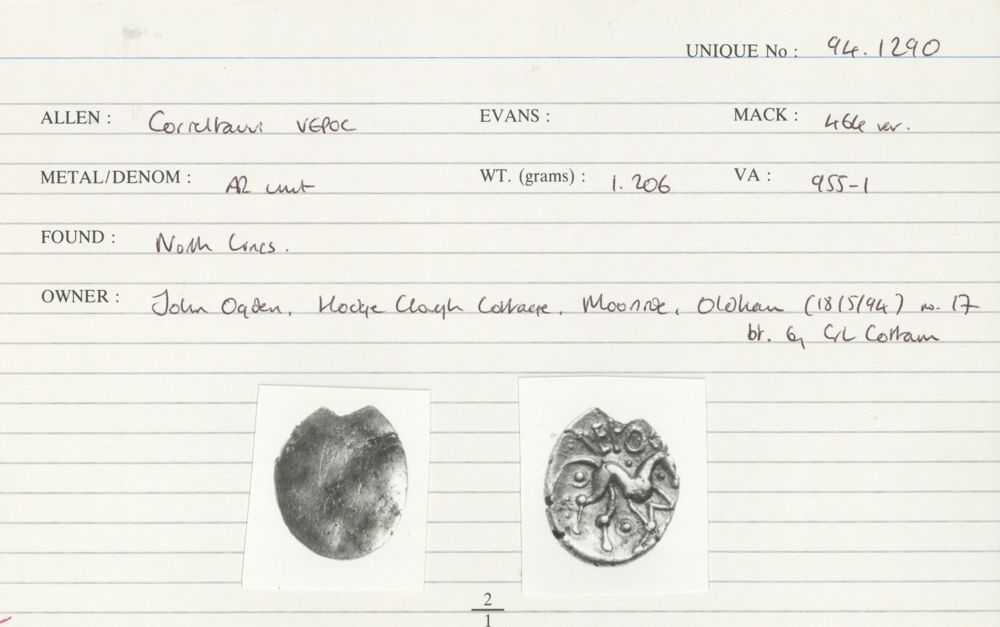 UNIQUE No : 94.1290
ALLEN : Corieltauvi VEPOC EVANS : MACK : 464 var.
METAL/DENOM : AR unit WT. (grams) : 1.206 VA : 955-1
FOUND : North Lincs.
OWNER : John Ogden, Hodge Clough Cottage, Moorside, Oldham (18/5/94) no. 17
bt. by Cottam
VEPO
2
1